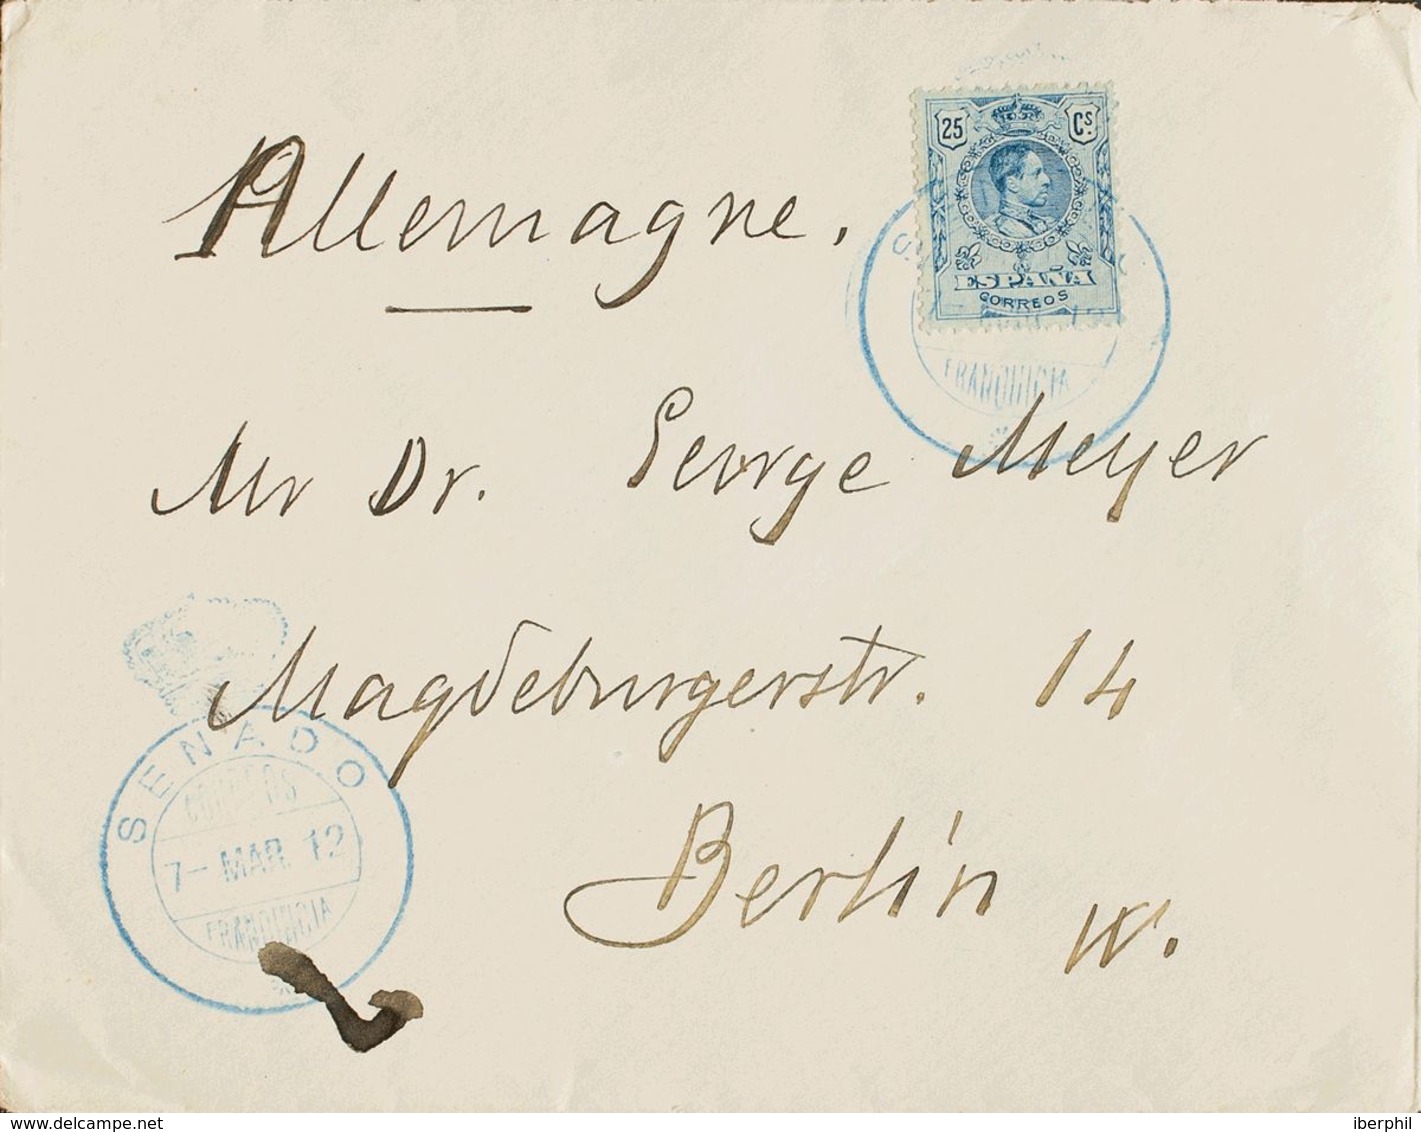 25 Cs.
ESPAÑA
CORREOS
FRANQUICIA
Allemagne.
Mr Dr. George Meyer
Magdeburgerstr. 14
Berlin
W.
SENADO
CORREOS
7- MAR. 12
FRANQUICIA
www.delcampe.net
iberphil